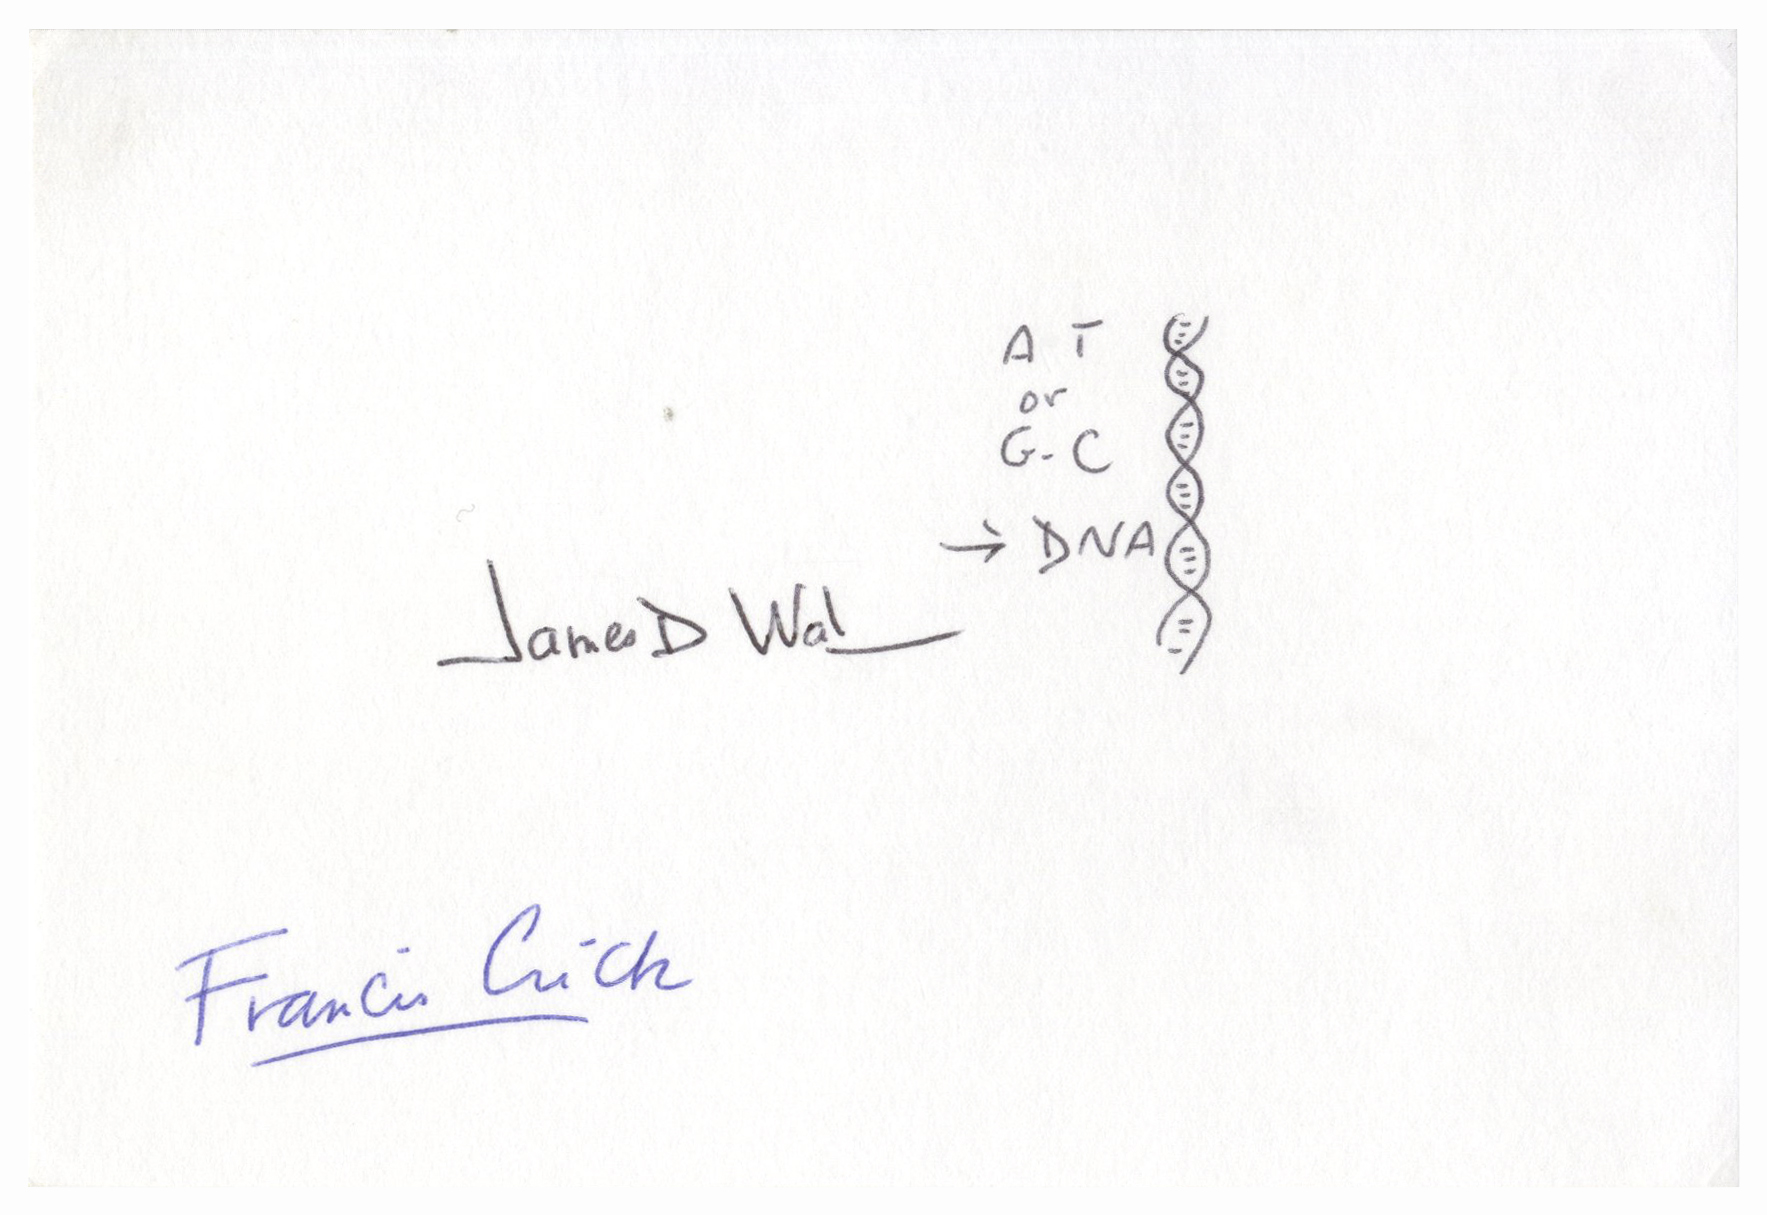 A T
or
G-C
→ DNA
James D Wat
Francis Crick